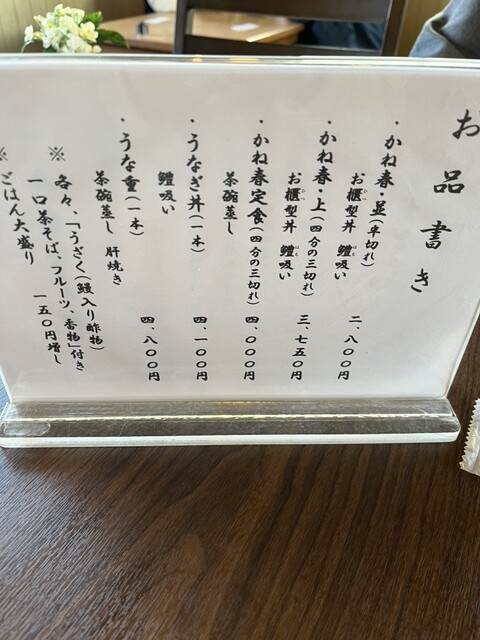 お品書き
・かね春・並(半切れ)
お櫃型丼 鱧吸い
二、八〇〇円
・かね春・上(四分の三切れ)
お櫃型丼 鱧吸い
三、七五〇円
・かね春定食(四分の三切れ)
茶碗蒸し
四、〇〇〇円
・うなぎ丼(一本)
鱧吸い
四、一〇〇円
・うな重(一本)
茶碗蒸し 肝焼き
四、八〇〇円
※ 各々、「うざく(鰻入り酢物)
一口茶そば、フルーツ、香物」付き
※ ごはん大盛り 一五〇円増し